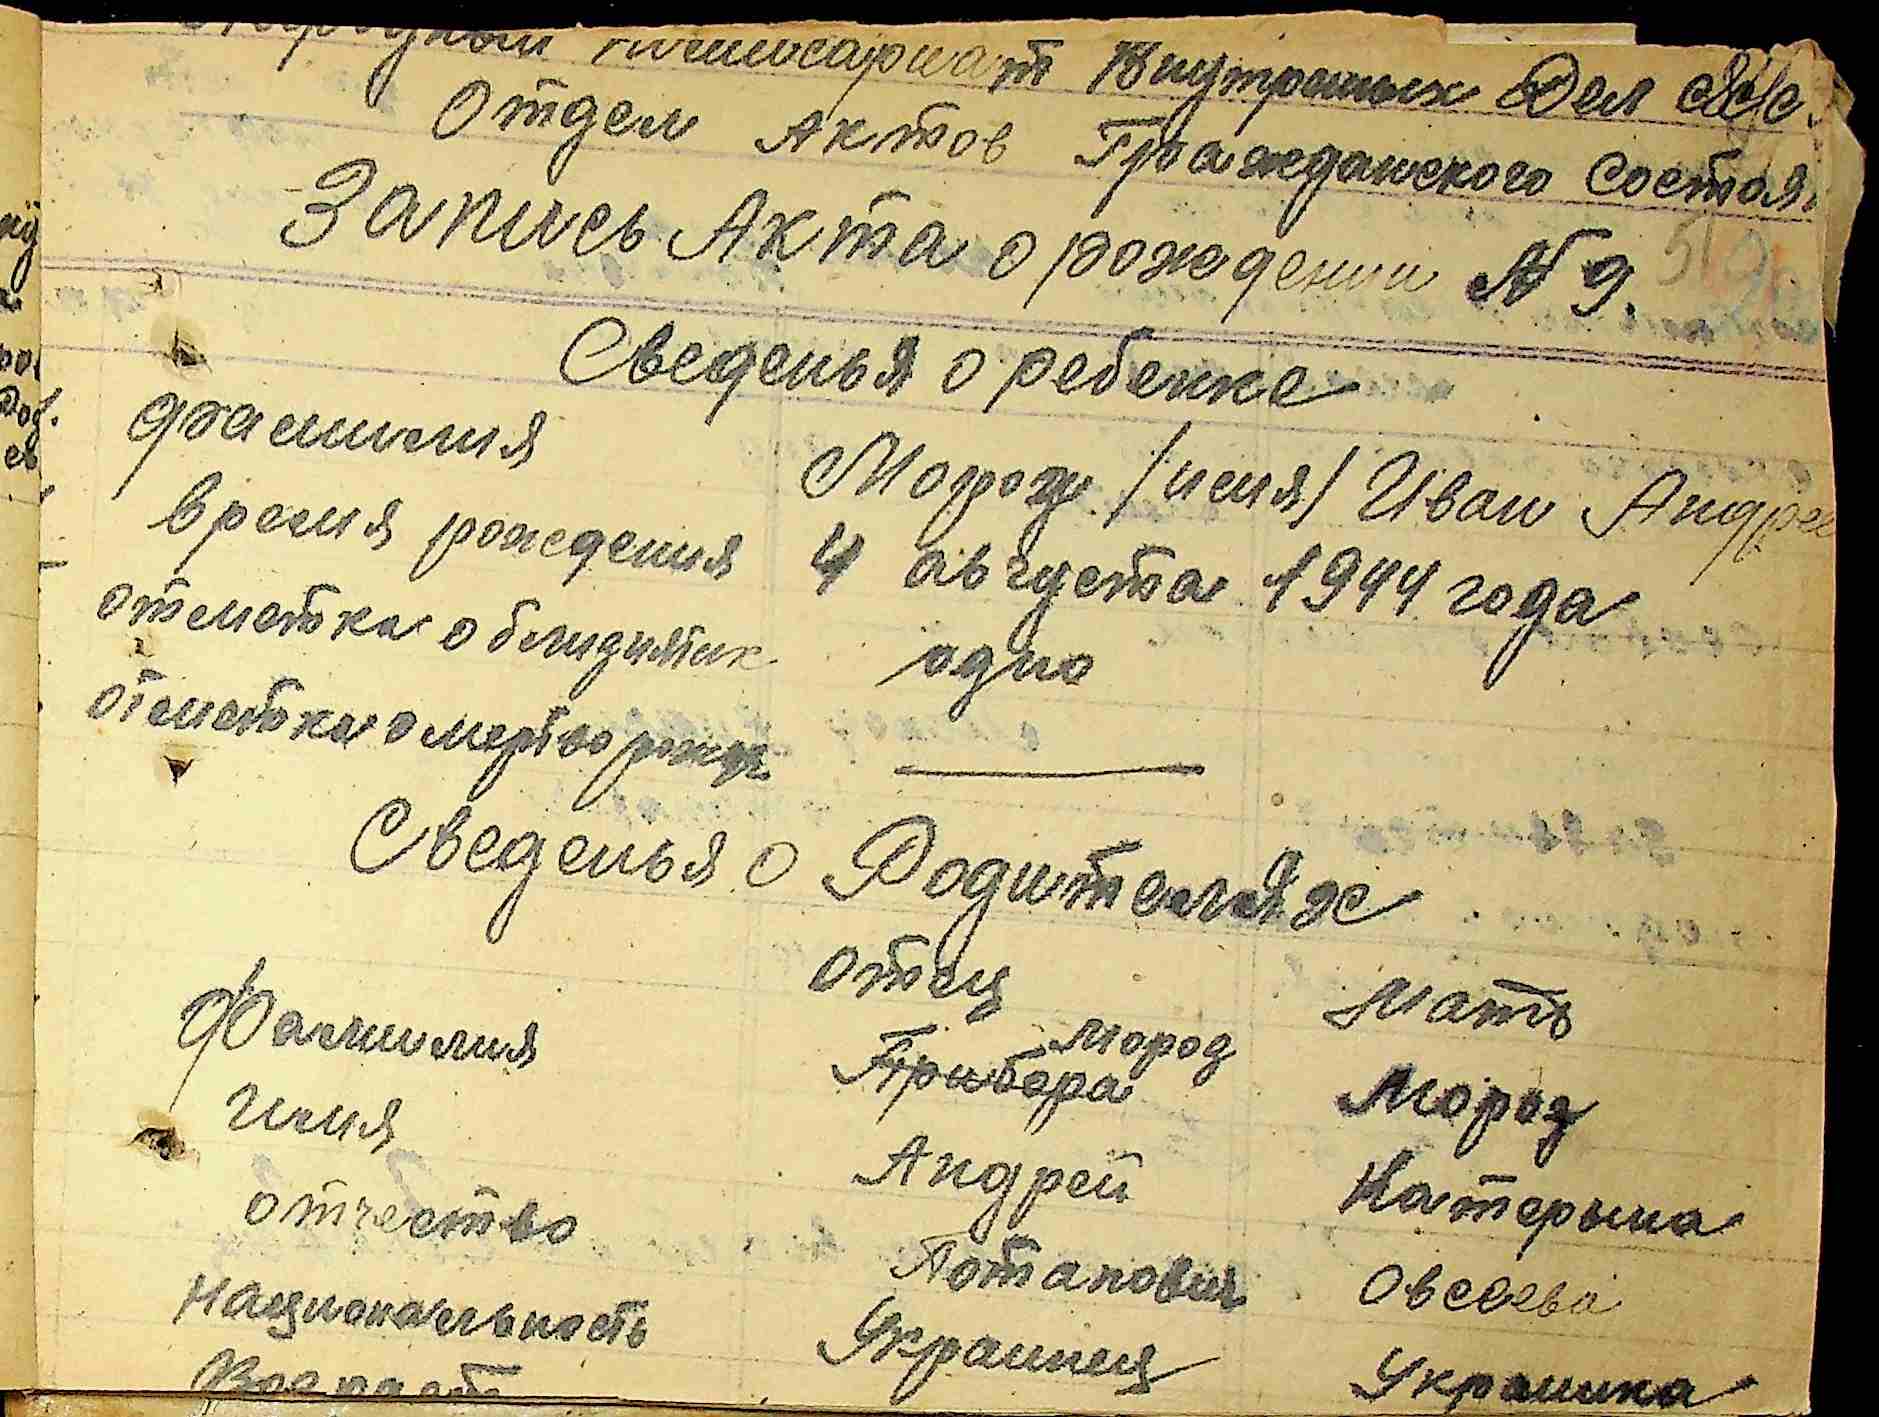 Народный Комисариат Внутриных Дел
Отдел Актов Гражданского Состоя
Запись Акта о рождении № 9.
Сведенья о ребенке
фамилия Мороз /имя/ Иван Андрее
время рождения 4 августа 1944 года
отметка о близнятах одно
отметка о мертворожд
Сведенья о Родителях
отец мать
Мороз
Фамилия Прибора Мороз
Имя Андрей Катерына
отчество Потапович Овсеева
Национальность Украинец Украинка
Возраст